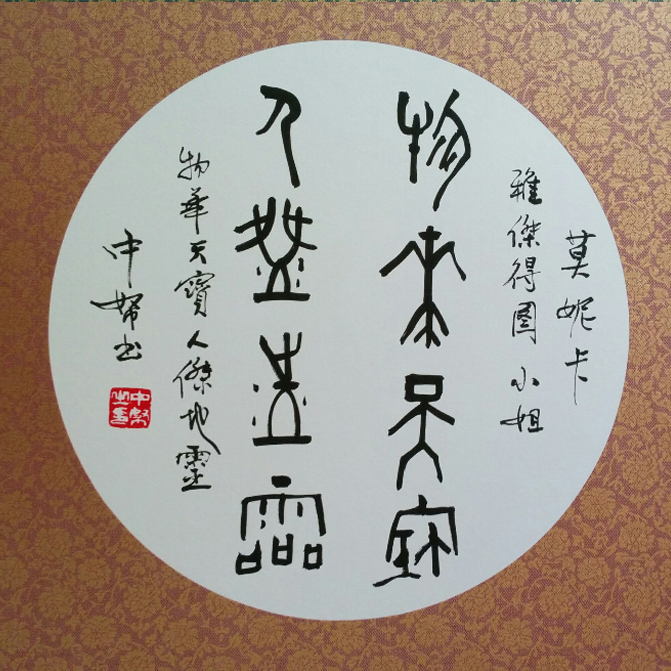 莫妮卡
雅傑得圖 小姐
物華天寶
人傑地靈
物華天寶人傑地靈
中幣书